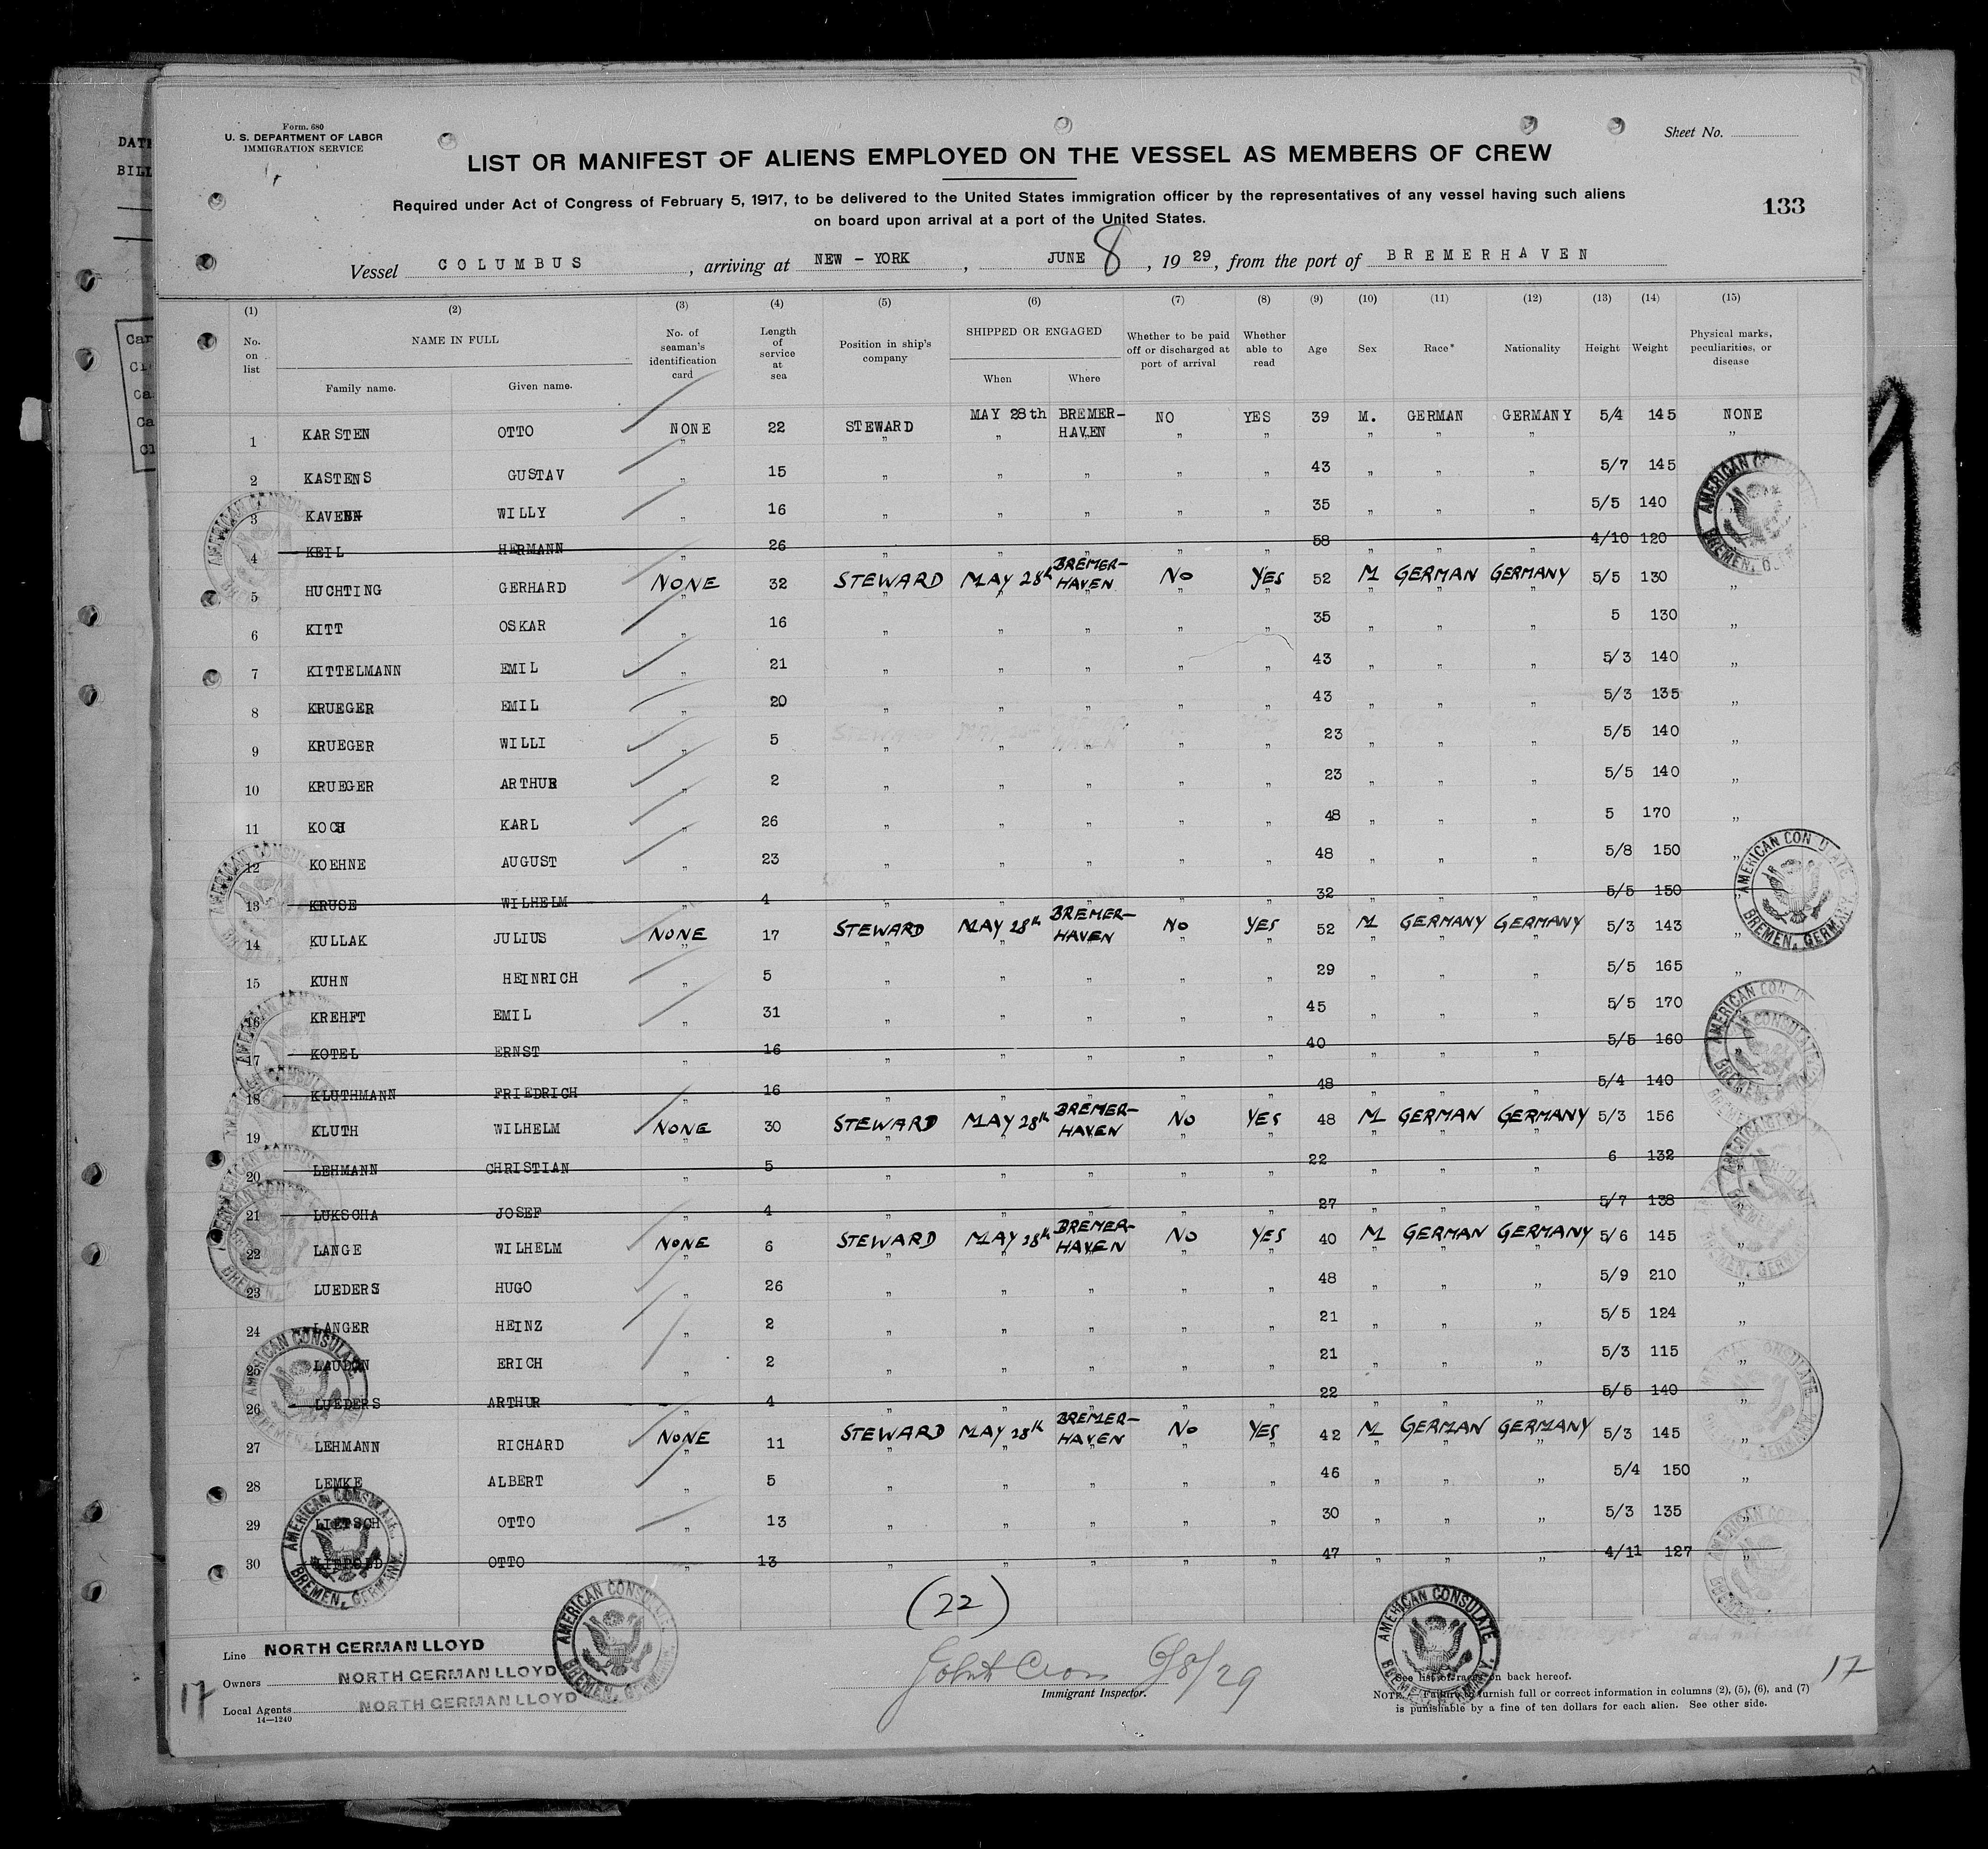 DATE
BILL
Form. 680
U. S. DEPARTMENT OF LABOR
IMMIGRATION SERVICE
Sheet No.
LIST OR MANIFEST OF ALIENS EMPLOYED ON THE VESSEL AS MEMBERS OF CREW
Required under Act of Congress of February 5, 1917, to be delivered to the United States immigration officer by the representatives of any vessel having such aliens
on board upon arrival at a port of the United States.
133
Vessel COLUMBUS, arriving at NEW - YORK, JUNE 8, 1929, from the port of BREMERHAVEN
(1) (2) (3) (4) (5) (6) (7) (8) (9) (10) (11) (12) (13) (14) (15)
No. on list NAME IN FULL Family name. Given name. No. of seaman's identification card Length of service at sea Position in ship's company SHIPPED OR ENGAGED When Where Whether to be paid off or discharged at port of arrival Whether able to read Age Sex Race* Nationality Height Weight Physical marks, peculiarities, or disease
1 KARSTEN OTTO NONE 22 STEWARD MAY 28th BREMER-HAVEN NO YES 39 M. GERMAN GERMANY 5/4 145 NONE
2 KASTENS GUSTAV " 15 " " " " " 43 " " " 5/7 145
3 KAVEN WILLY " 16 " " " " " 35 " " " 5/5 140
4 KEIL HERMANN " 26 " " " " " 58 " " " 4/10 120
5 HUCHTING GERHARD NONE 32 STEWARD MAY 28th BREMER-HAVEN No YES 52 M GERMAN GERMANY 5/5 130 "
6 KITT OSKAR " 16 " " " " " 35 " " " 5 130 "
7 KITTELMANN EMIL " 21 " " " " " 43 " " " 5/3 140 "
8 KRUEGER EMIL " 20 " " " " " 43 " " " 5/3 135 "
9 KRUEGER WILLI " 5 " " " " " 23 " " " 5/5 140 "
10 KRUEGER ARTHUR " 2 " " " " " 23 " " " 5/5 140 "
11 KOCH KARL " 26 " " " " " 48 " " " 5 170 "
12 KOEHNE AUGUST " 23 " " " " " 48 " " " 5/8 150 "
13 KRUSE WILHELM " 4 " " " " " 32 " " " 5/5 150
14 KULLAK JULIUS NONE 17 STEWARD MAY 28th BREMER-HAVEN No YES 52 M GERMANY GERMANY 5/3 143 "
15 KUHN HEINRICH " 5 " " " " " 29 " " " 5/5 165 "
16 KREHFT EMIL " 31 " " " " " 45 " " " 5/5 170
17 KOTEL ERNST " 16 " " " " " 40 " " " 5/5 160
18 KLUTHMANN FRIEDRICH " 16 " " " " " 48 " " " 5/4 140 "
19 KLUTH WILHELM NONE 30 STEWARD MAY 28th BREMER-HAVEN No YES 48 M GERMAN GERMANY 5/3 156
20 LEHMANN CHRISTIAN " 5 " " " " " 22 " " " 6 132 "
21 LUKSCHA JOSEF " 4 " " " " " 27 " " " 5/7 138
22 LANGE WILHELM NONE 6 STEWARD MAY 28th BREMER-HAVEN No YES 40 M GERMAN GERMANY 5/6 145 "
23 LUEDERS HUGO " 26 " " " " " 48 " " " 5/9 210 "
24 LANGER HEINZ " 2 " " " " " 21 " " " 5/5 124 "
25 LAUDON ERICH " 2 " " " " " 21 " " " 5/3 115 "
26 LUEDERS ARTHUR " 4 " " " " " 22 " " " 5/5 140 "
27 LEHMANN RICHARD NONE 11 STEWARD MAY 28th BREMER-HAVEN No YES 42 M GERMAN GERMANY 5/3 145 "
28 LEMKE ALBERT " 5 " " " " " 46 " " " 5/4 150 "
29 LIETSCH OTTO " 13 " " " " " 30 " " " 5/3 135 "
30 OTTO " 13 " " " " " 47 " " " 4/11 127 "
(22)
Line NORTH GERMAN LLOYD
Owners NORTH GERMAN LLOYD
Local Agents NORTH GERMAN LLOYD
14—1240
17
6/8/29
Immigrant Inspector.
AMERICAN CONSULATE
BREMEN, GERMANY.
See list of races on back hereof.
NOTE.—Failure to furnish full or correct information in columns (2), (5), (6), and (7)
is punishable by a fine of ten dollars for each alien. See other side.
17